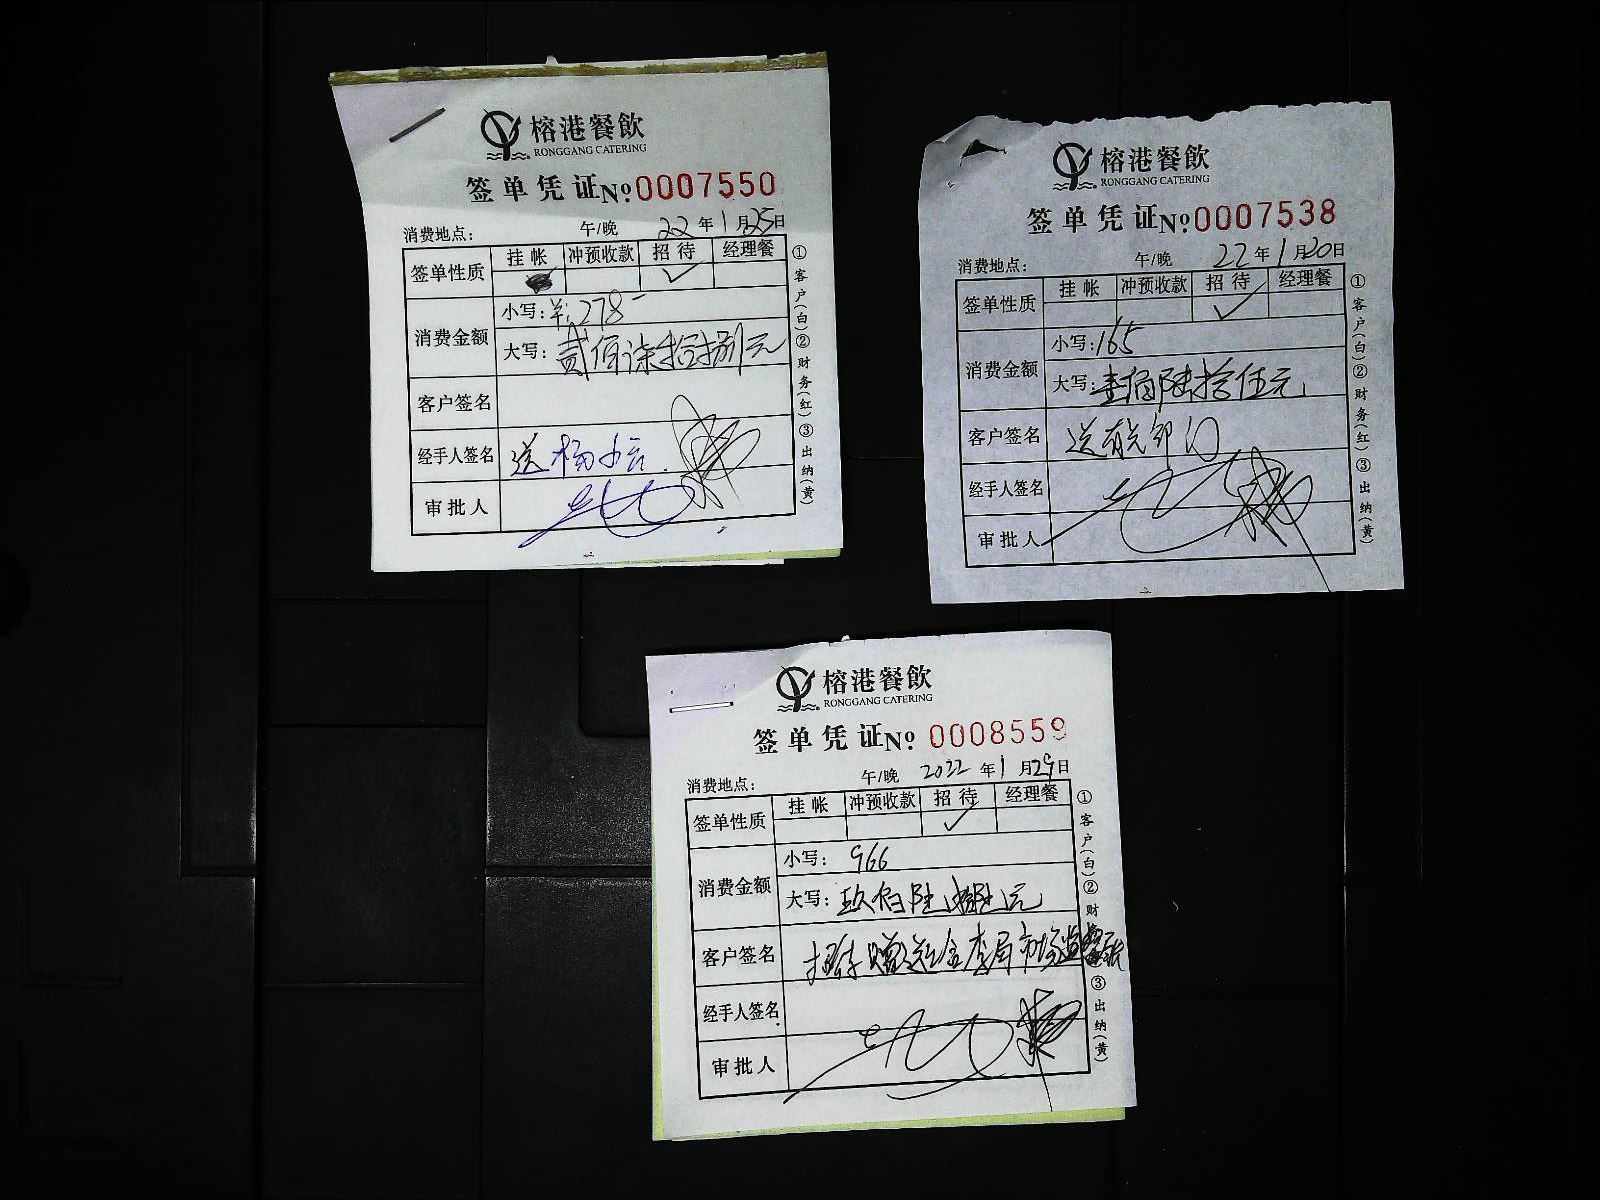 榕港餐飲
RONGGANG CATERING
签单凭证No 0007550
消费地点: 午/晚 22年1月25日
签单性质 挂帐 冲预收款 招待 经理餐
✓
消费金额
小写: 羊:278-
大写: 贰佰柒拾捌元
客户签名
经手人签名 送杨
审批人
①客户(白)②财务(红)③出纳(黄)
榕港餐飲
RONGGANG CATERING
签单凭证No 0007538
消费地点: 午/晚 22年1月20日
签单性质 挂帐 冲预收款 招待 经理餐
✓
消费金额
小写: 165
大写: 壹佰陆拾伍元
客户签名 送有关部门
经手人签名
审批人
①客户(白)②财务(红)③出纳(黄)
榕港餐飲
RONGGANG CATERING
签单凭证No 0008559
消费地点: 午/晚 2022年1月29日
签单性质 挂帐 冲预收款 招待 经理餐
✓
消费金额
小写: 966
大写: 玖佰陆拾陆元
客户签名 赠送 局市场
经手人签名
审批人
①客户(白)②财 ③出纳(黄)